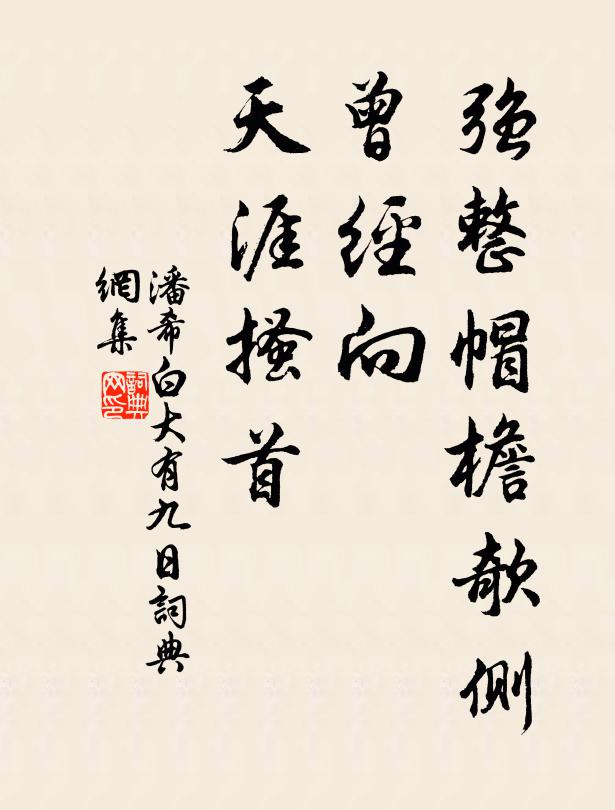 强整帽檐欹側
曾經向
天涯搔首
潘希白大有九日詞典
網集
詞典网印